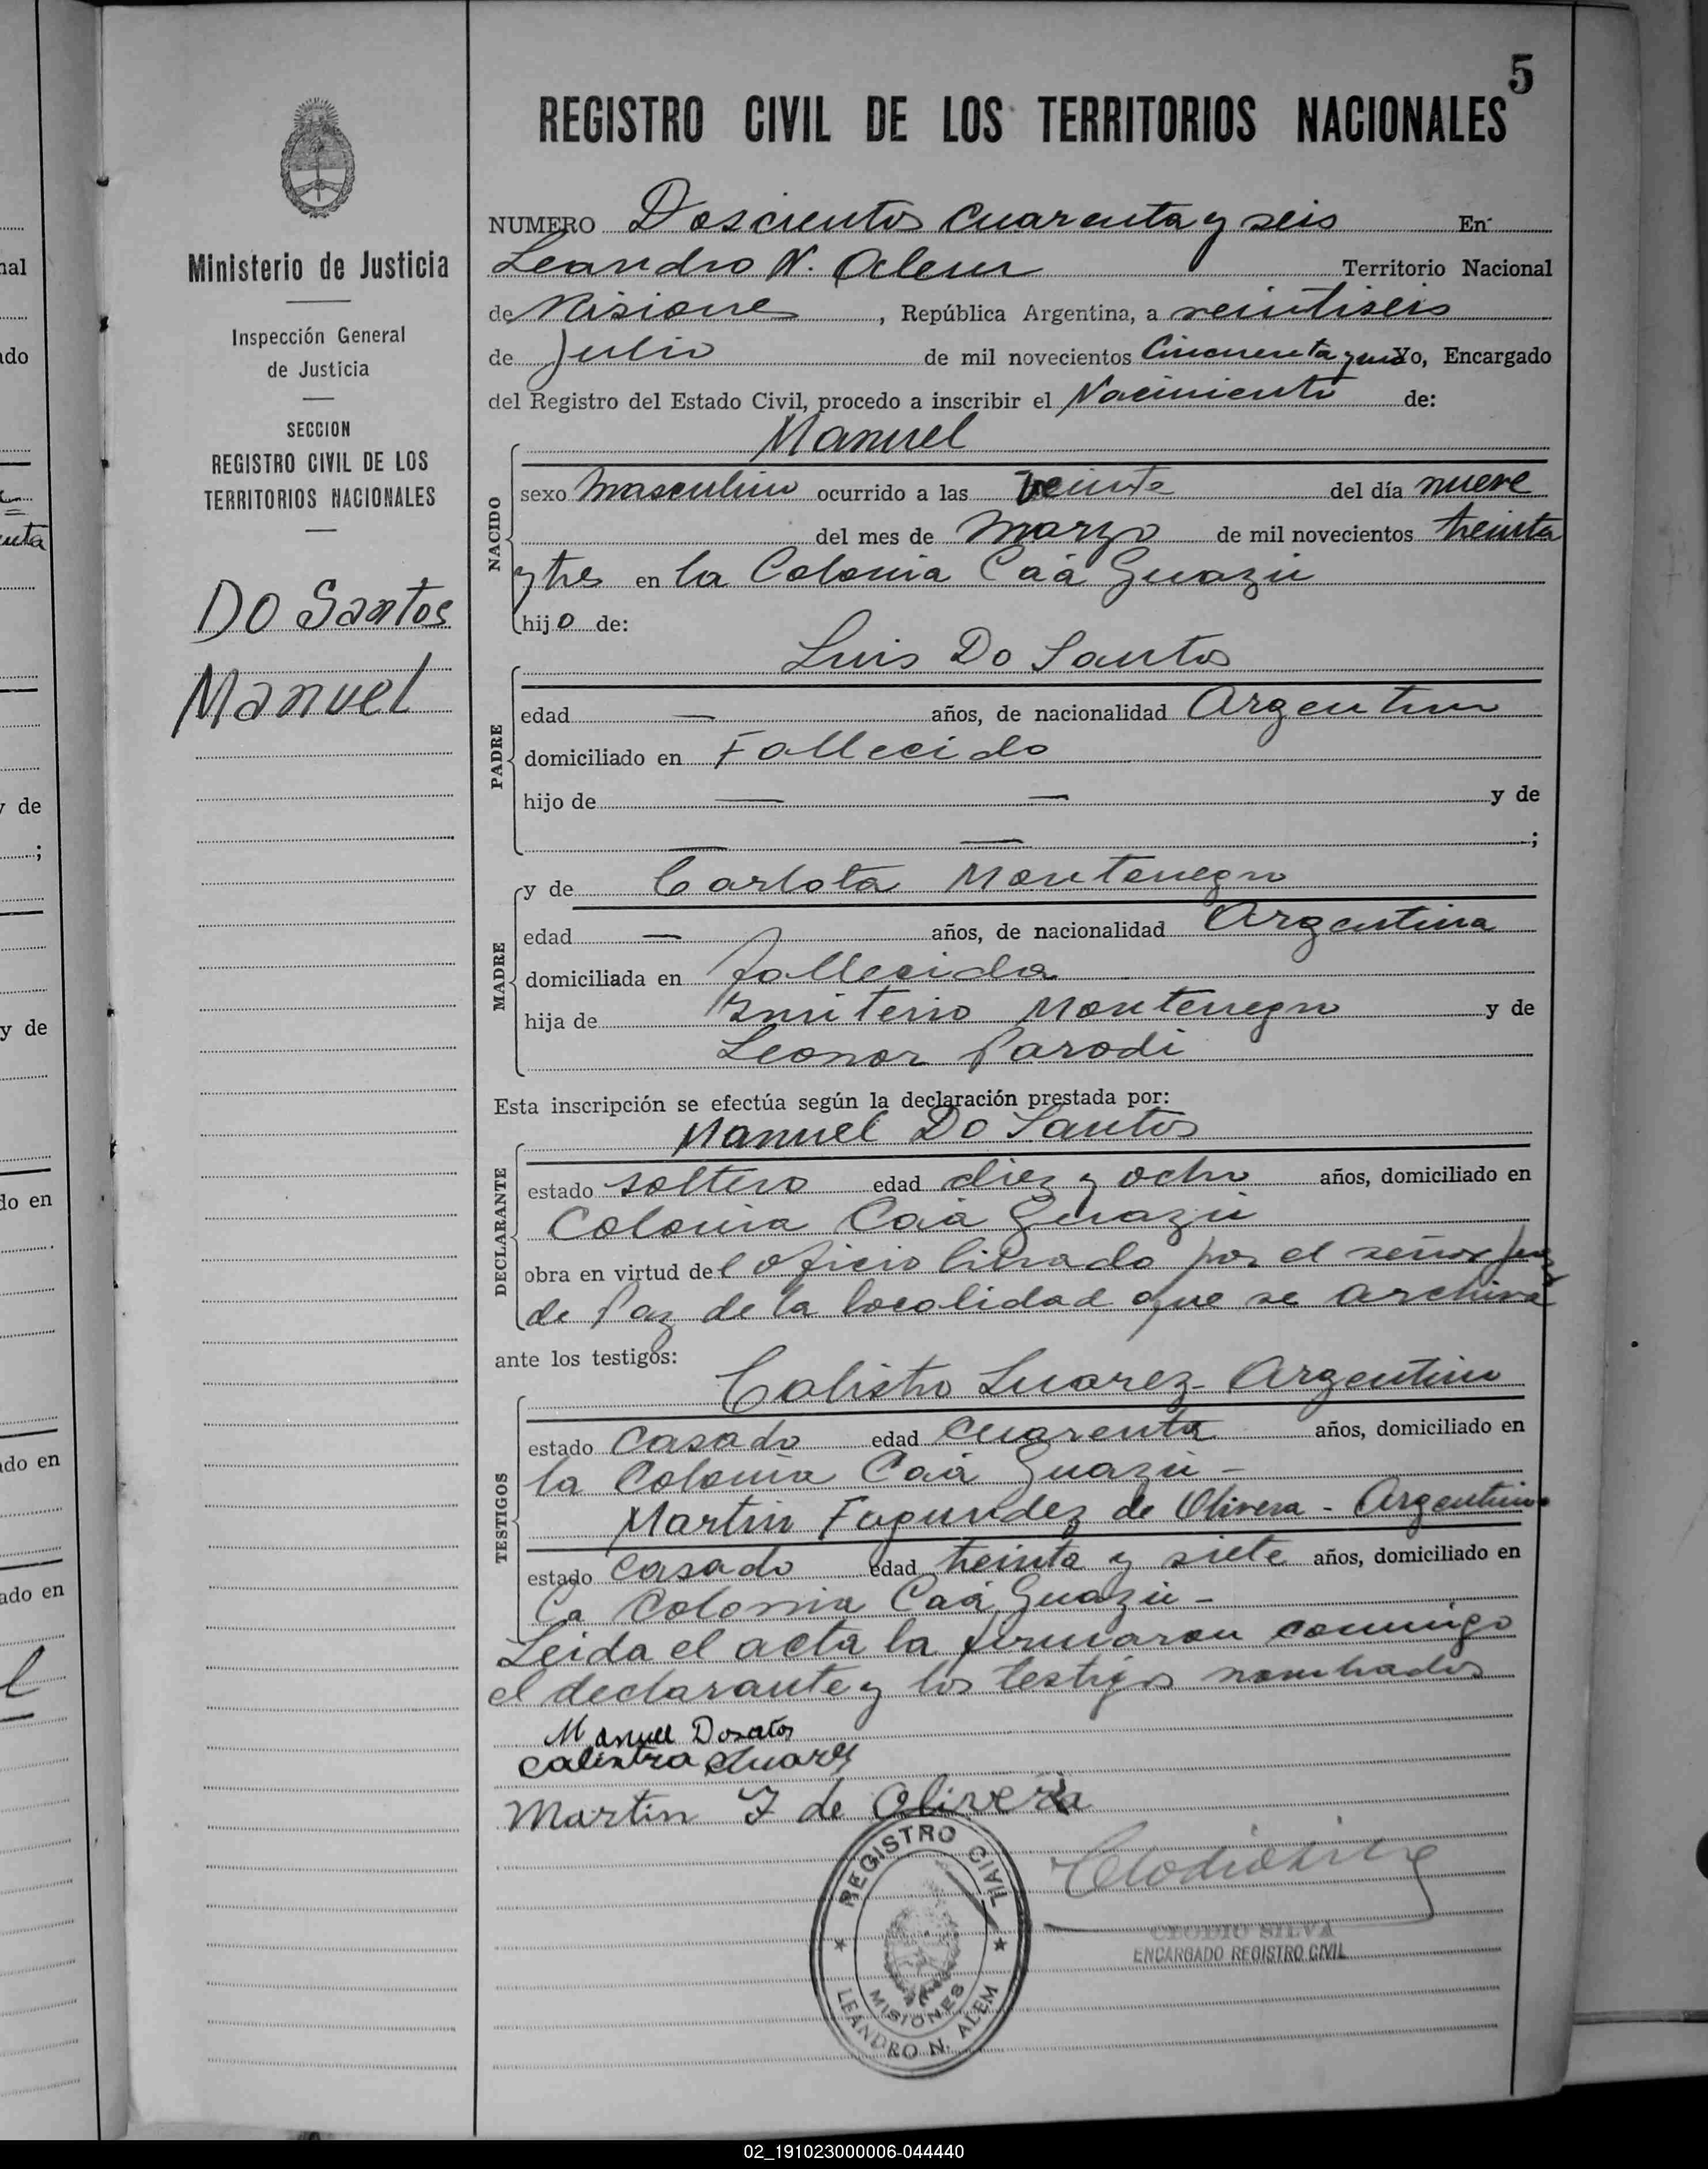 5
REGISTRO CIVIL DE LOS TERRITORIOS NACIONALES
Ministerio de Justicia
Inspección General
de Justicia
SECCION
REGISTRO CIVIL DE LOS
TERRITORIOS NACIONALES
DO Santos
Manuel
NUMERO Doscientos Cuarenta y seis En
Leandro N. Alem Territorio Nacional
de Misiones, República Argentina, a veintiseis
de Julio de mil novecientos Cincuenta y uno Yo, Encargado
del Registro del Estado Civil, procedo a inscribir el Nacimiento de:
Manuel
NACIDO
sexo masculino ocurrido a las veinte del día nueve
del mes de marzo de mil novecientos treinta
y tres en la Colonia Caá Guazú
hijo de:
Luis Do Santos
PADRE
edad — años, de nacionalidad Argentino
domiciliado en Fallecido
hijo de — — y de
— — ;
MADRE
y de Carlota Montenegro
edad — años, de nacionalidad Argentina
domiciliada en fallecida
hija de Montenegro y de
Leonor Parodi
Esta inscripción se efectúa según la declaración prestada por:
Manuel Do Santos
DECLARANTE
estado soltero edad diez y ocho años, domiciliado en
Colonia Caá Guazú
obra en virtud del oficio librado por el señor Juez
de Paz de la localidad que se archiva
ante los testigos:
TESTIGOS
Calistro Suarez - Argentino
estado Casado edad Cuarenta años, domiciliado en
la Colonia Caá Guazú -
Martin Fagundez de Olivera - Argentino
estado Casado edad treinta y siete años, domiciliado en
la Colonia Caá Guazú -
Leida el acta la firmaron conmigo
el declarante y los testigos nombrados
Manuel Dosatos
Calistro Suarez
Martin F de Olivera
REGISTRO CIVIL
MISIONES
LEANDRO N. ALEM
CLODIO SILVA
ENCARGADO REGISTRO CIVIL
nal
do
y de
;
y de
do en
do en
ado en
02_191023000006-044440